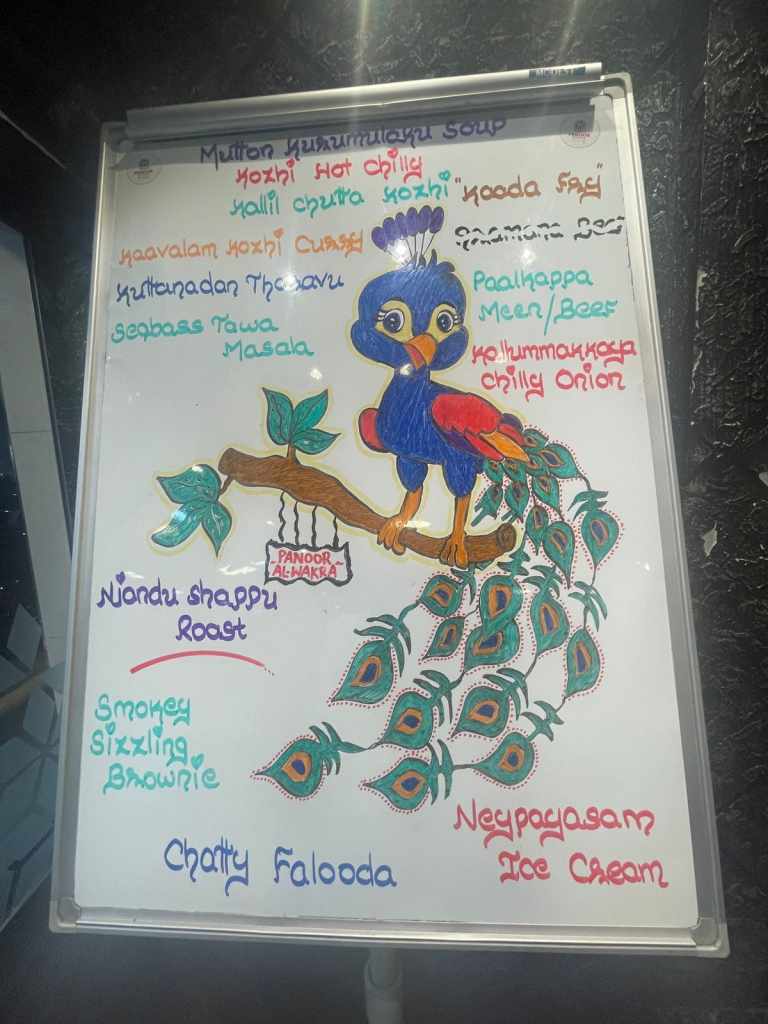 Mutton Kurumulaku Soup
Kozhi Hot Chilly
Kallil Chutta Kozhi "Kooda Fry"
Kaavalam Kozhi Curry
Kuttanadan Tharavu
Seabass Tawa
Masala
Paalkappa
Meen/Beef
Kallummakkaya
Chilly Onion
PANOOR
AL-WAKRA
Njandu Shappu
Roast
Smokey
Sizzling
Brownie
Chatty Falooda
Neypayasam
Ice Cream